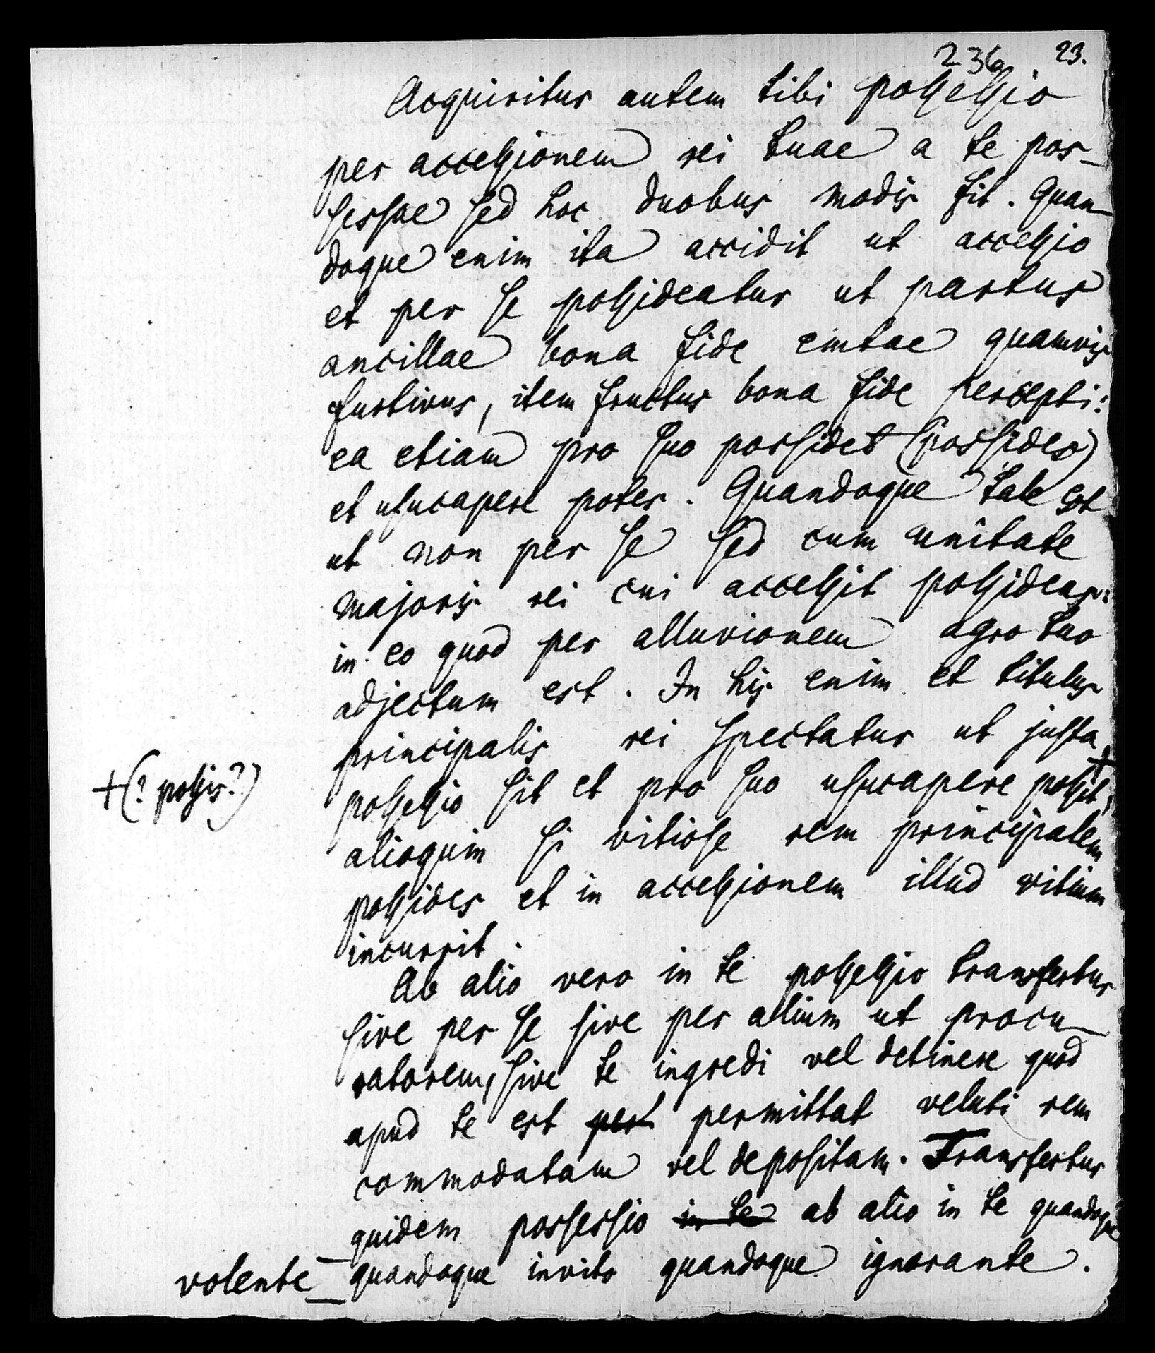 236 23.
Acquiritur autem tibi possessio
per accessionem rei tuae a te pos-
sessae sed hoc duobus modis fit. Quan-
doque enim ita accidit ut accessio
et per se possideatur ut partus
ancillae bona fide emtae quamvis
furtivus, item fructus bona fide percepti:
ea etiam pro suo possidet (possideo)
et usucapere potes. Quandoque tale est
ut non per se sed cum unitate
majoris rei cui accessit possideas:
in eo quod per alluvionem agro tuo
adjectum est. In his enim et titulus
principalis rei spectatur ut justa
possessio sit et pro suo usucapere possit,+
+(? possis?)
alioquin si vitiose rem principalem
possides et in accessionem illud vitium
incurrit.
Ab alio vero in te possessio transfertur
sive per se sive per alium ut procu-
ratorem, sive te ingredi vel detinere quod
apud te est pert permittat veluti rem
commodatam vel depositam. Transfertur
quidem possessio in te ab alio in te quandoque
volente quandoque invito quandoque ignorante.